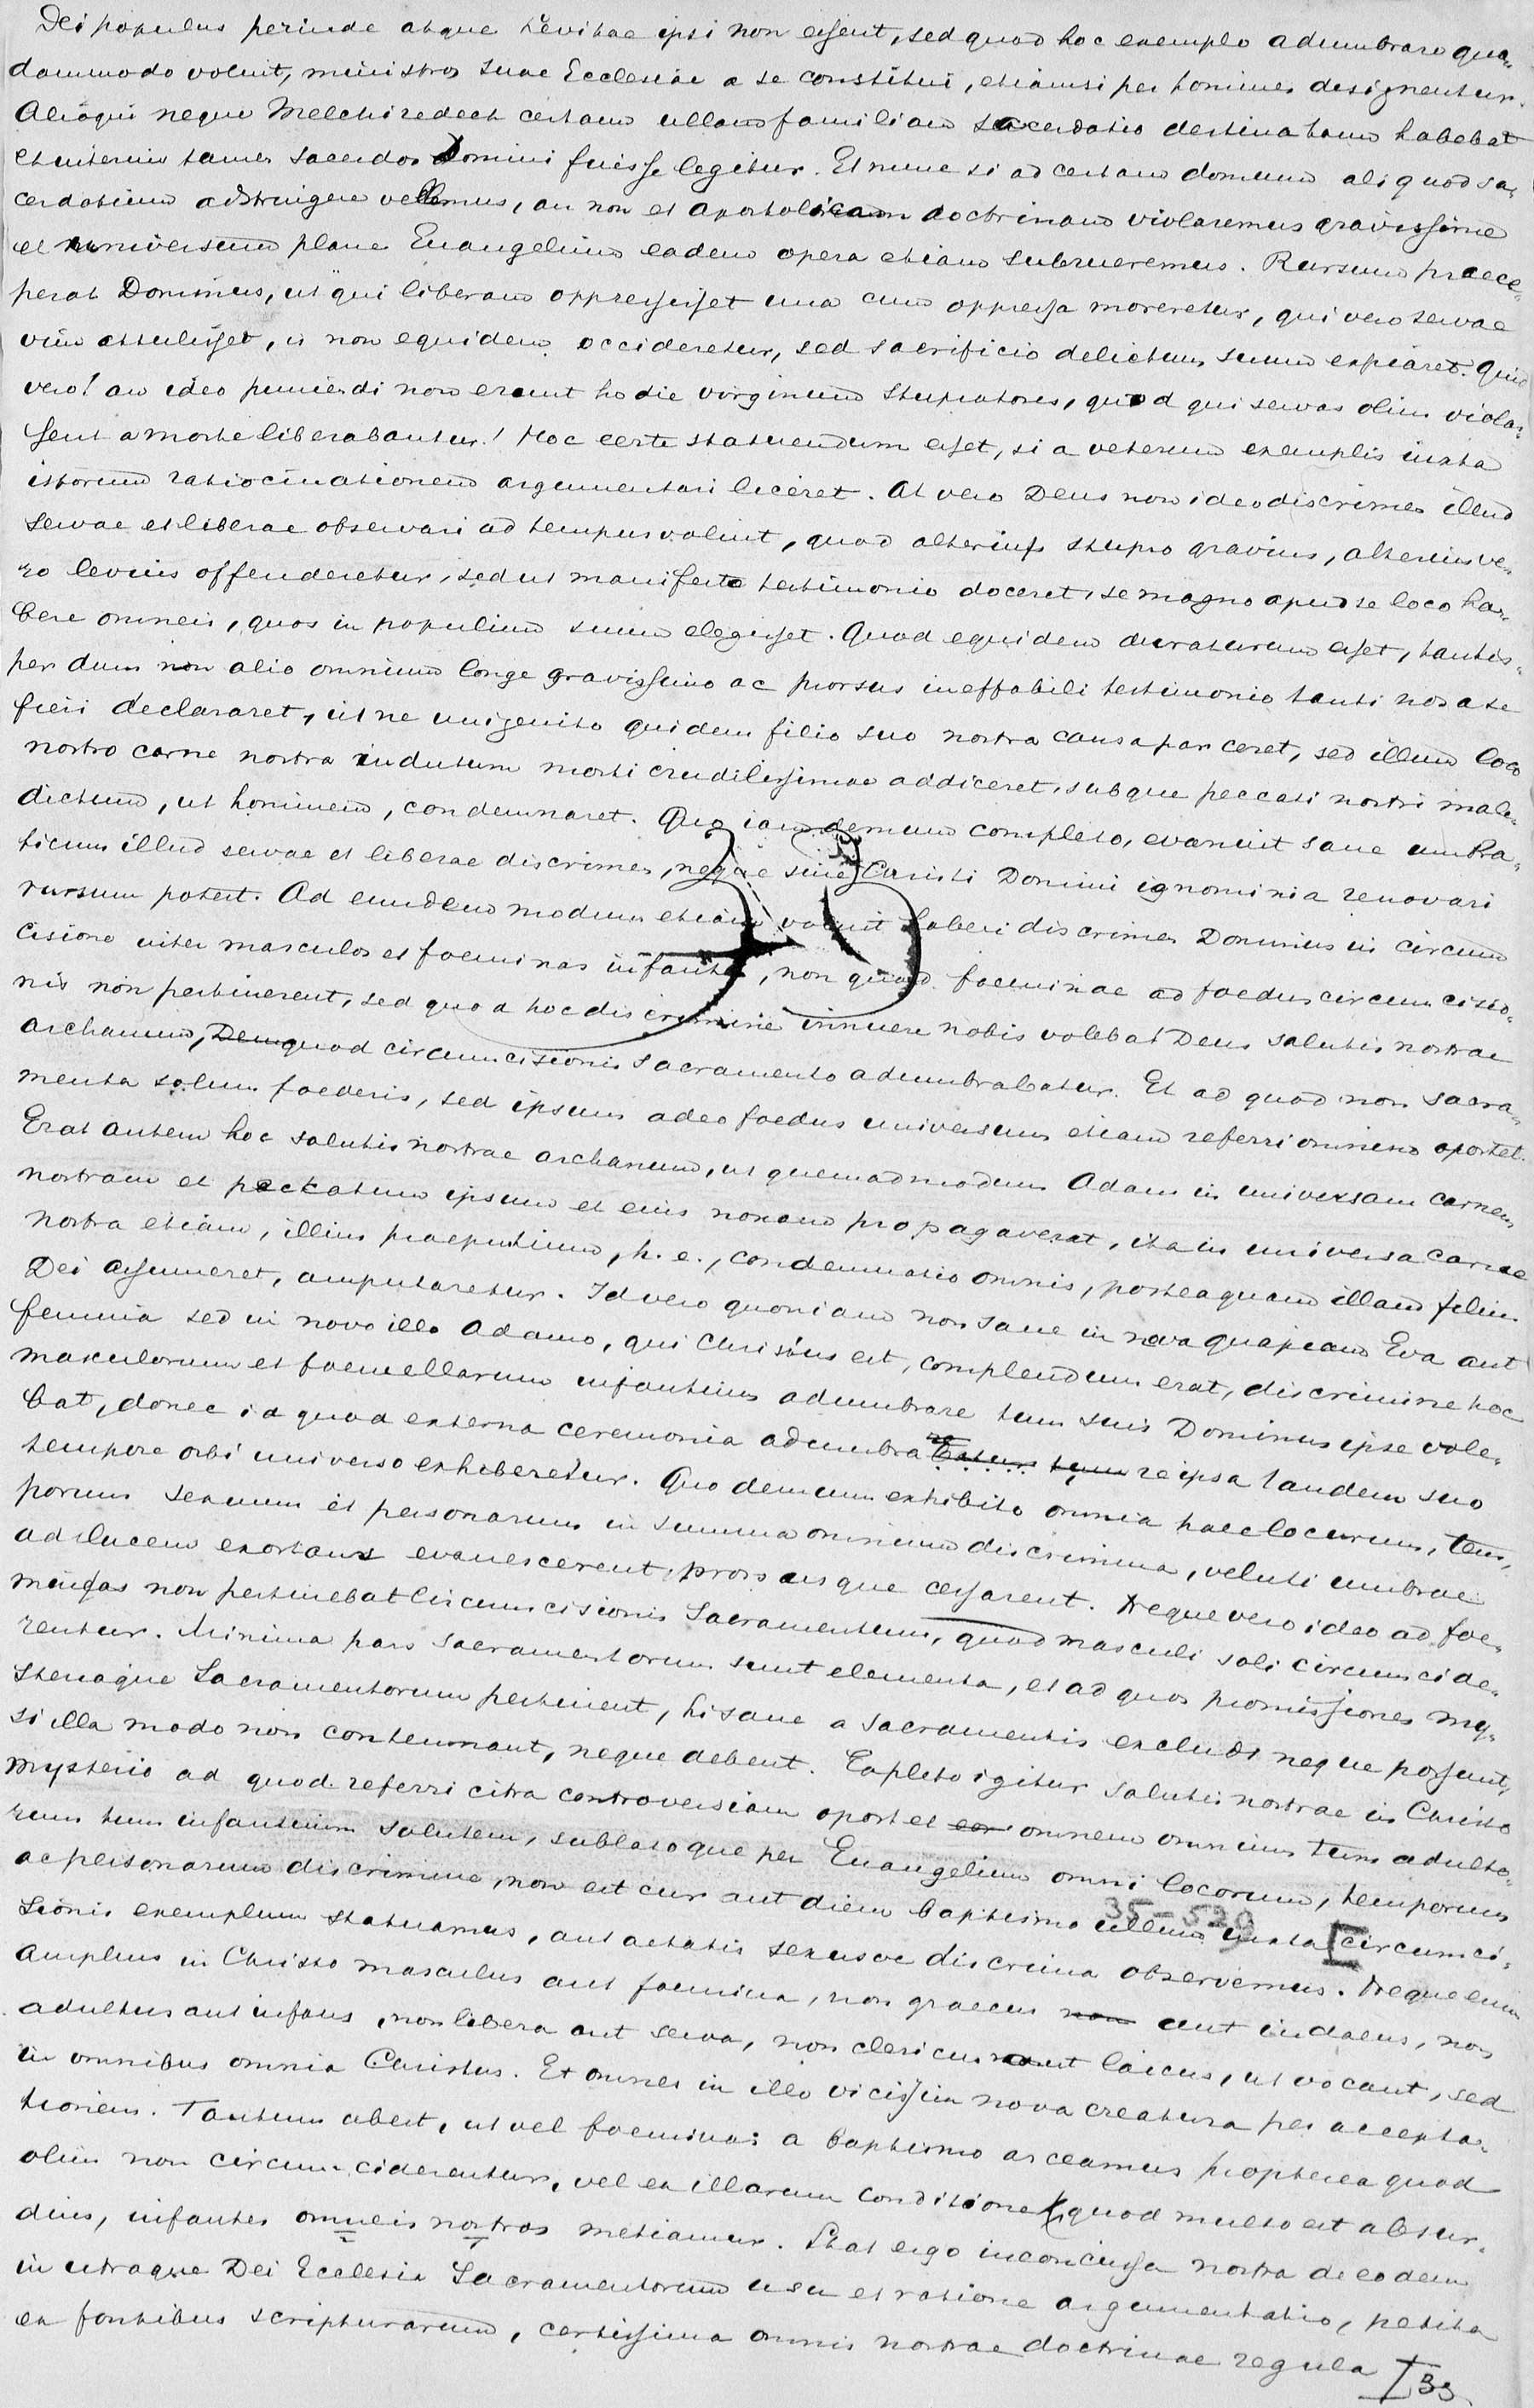 Dei populus perinde atque Levitae ipsi non essent, sed quod hoc exemplo adumbrare qua-
dammodo voluit, ministros suae Ecclesiae a se constitui, etiamsi per homines designentur.
Alioqui neque Melchizedech certam ullam familiam sacerdotio destinatam habebat
et interim tamen sacerdos Domini fuisse legitur. Et nunc si ad certam domum aliquod sa-
cerdotium adstringere vellemus, an non et apostolicam doctrinam violaremus gravissime
et universum plane Euangelium eadem opera etiam subrueremus. Rursum praece-
perat Dominus, ut qui liberam oppressisset una cum oppressa moreretur, qui vero servae
vim attulisset, is non equidem occideretur, sed sacrificio delictum suum expiaret. Quid
vero! an ideo puniendi non erunt hodie virginum stupratores, quod qui servas olim violas-
sent a morte liberabantur! Hoc certe statuendum esset, si a veterum exemplis iuxta
istorum ratiocinationem argumentari liceret. At vero Deus non ideo discrimen illud
servae et liberae observari ad tempus voluit, quod alterius stupro gravius, alterius ve-
ro levius offenderetur, sed ut manifesto testimonio doceret, se magno apud se loco ha-
bere omneis, quos in populum suum elegisset. Quod equidem duraturum esset, tantis-
per dum non alio omnium longe gravissimo ac prorsus ineffabili testimonio tanti nos a se
fieri declararet, ut ne unigenito quidem filio suo nostra causa parceret, sed illum loco
nostro carne nostra indutum morti crudelissimae addiceret, subque peccati nostri male-
dictum, ut hominem, condemnaret. Quo iam demum completo, evanuit sane umbra-
ticum illud servae et liberae discrimen, neque sine Christi Domini ignominia renovari
rursum potest. Ad eundem modum etiam voluit haberi discrimen Dominus in circum
cisione inter masculos et foeminas infantes, non quod foeminae ad foedus circumcisio-
nis non pertinerent, sed quod hoc discrimine innuere nobis volebat Deus salutis nostrae
archanum, Deus quod circumcisionis sacramento adumbrabatur. Et ad quod non sacra-
menta solum foederis, sed ipsum adeo foedus universum etiam referri omnino oportet.
Erat autem hoc salutis nostrae archanum, ut quemadmodum Adam in universam carnem
nostram et peccatum ipsum et eius noxam propagaverat, ita in universa carne
nostra etiam, illius praeputium, h. e., condemnatio omnis, posteaquam illam filius
Dei assumeret, amputaretur. Id vero quoniam non sane in nova quapiam Eva aut
femina sed in novo illo Adamo, qui Christus est, complendum erat, discrimine hoc
masculorum et foemellarum infantium adumbrare tum suis Dominus ipse vole-
bat, donec id quod externa ceremonia adumbra batur tum re ipsa tandem suo
tempore orbi universo exhiberetur. Quo demum exhibito omnia haec locorum, tem-
porum sexuum et personarum in summa omnium discrimina, veluti umbrae
ad lucem exortam evanescerent, prorsusque cessarent. Neque vero ideo ad foe-
minas non pertinebat Circumcisionis Sacramentum, quod masculi soli circumcide-
rentur. Minima pars sacramentorum sunt elementa, et ad quos promissiones my-
steriaque Sacramentorum pertinent, hi sane a sacramentis excludi neque possunt,
si illa modo non contemnant, neque debent. Expleto igitur salutis nostrae in Christo
mysterio ad quod referri citra controversiam oportet eos omnem omnium tum adulto-
rum tum infantium salutem, sublatoque per Euangelium omni locorum, temporum
ac personarum discrimine, non est cur aut diem baptismo ullum iuxta [circumci-
35-529
sionis exemplum statuamus, aut aetatis sexusve discrimina observemus. Neque enim
amplius in Christo masculus aut foemina, non graecus non aut iudaeus, non
adultus aut infans, non libera aut serva, non clericus aut laicus, ut vocant, sed
in omnibus omnia Christus. Et omnes in illo vicissim nova creatura per accepta-
tionem. Tantum abest, ut vel foeminas a baptismo arceamus propterea quod
olim non circumciderentur, vel ex illarum conditione quod multo est absur-
dius, infantes omneis nostros metiamur. Stat ergo inconcussa nostra de eodem
in utraque Dei Ecclesia Sacramentorum usu et ratione argumentatio, petita
ex fontibus scripturarum, certissima omnis nostrae doctrinae regula
33